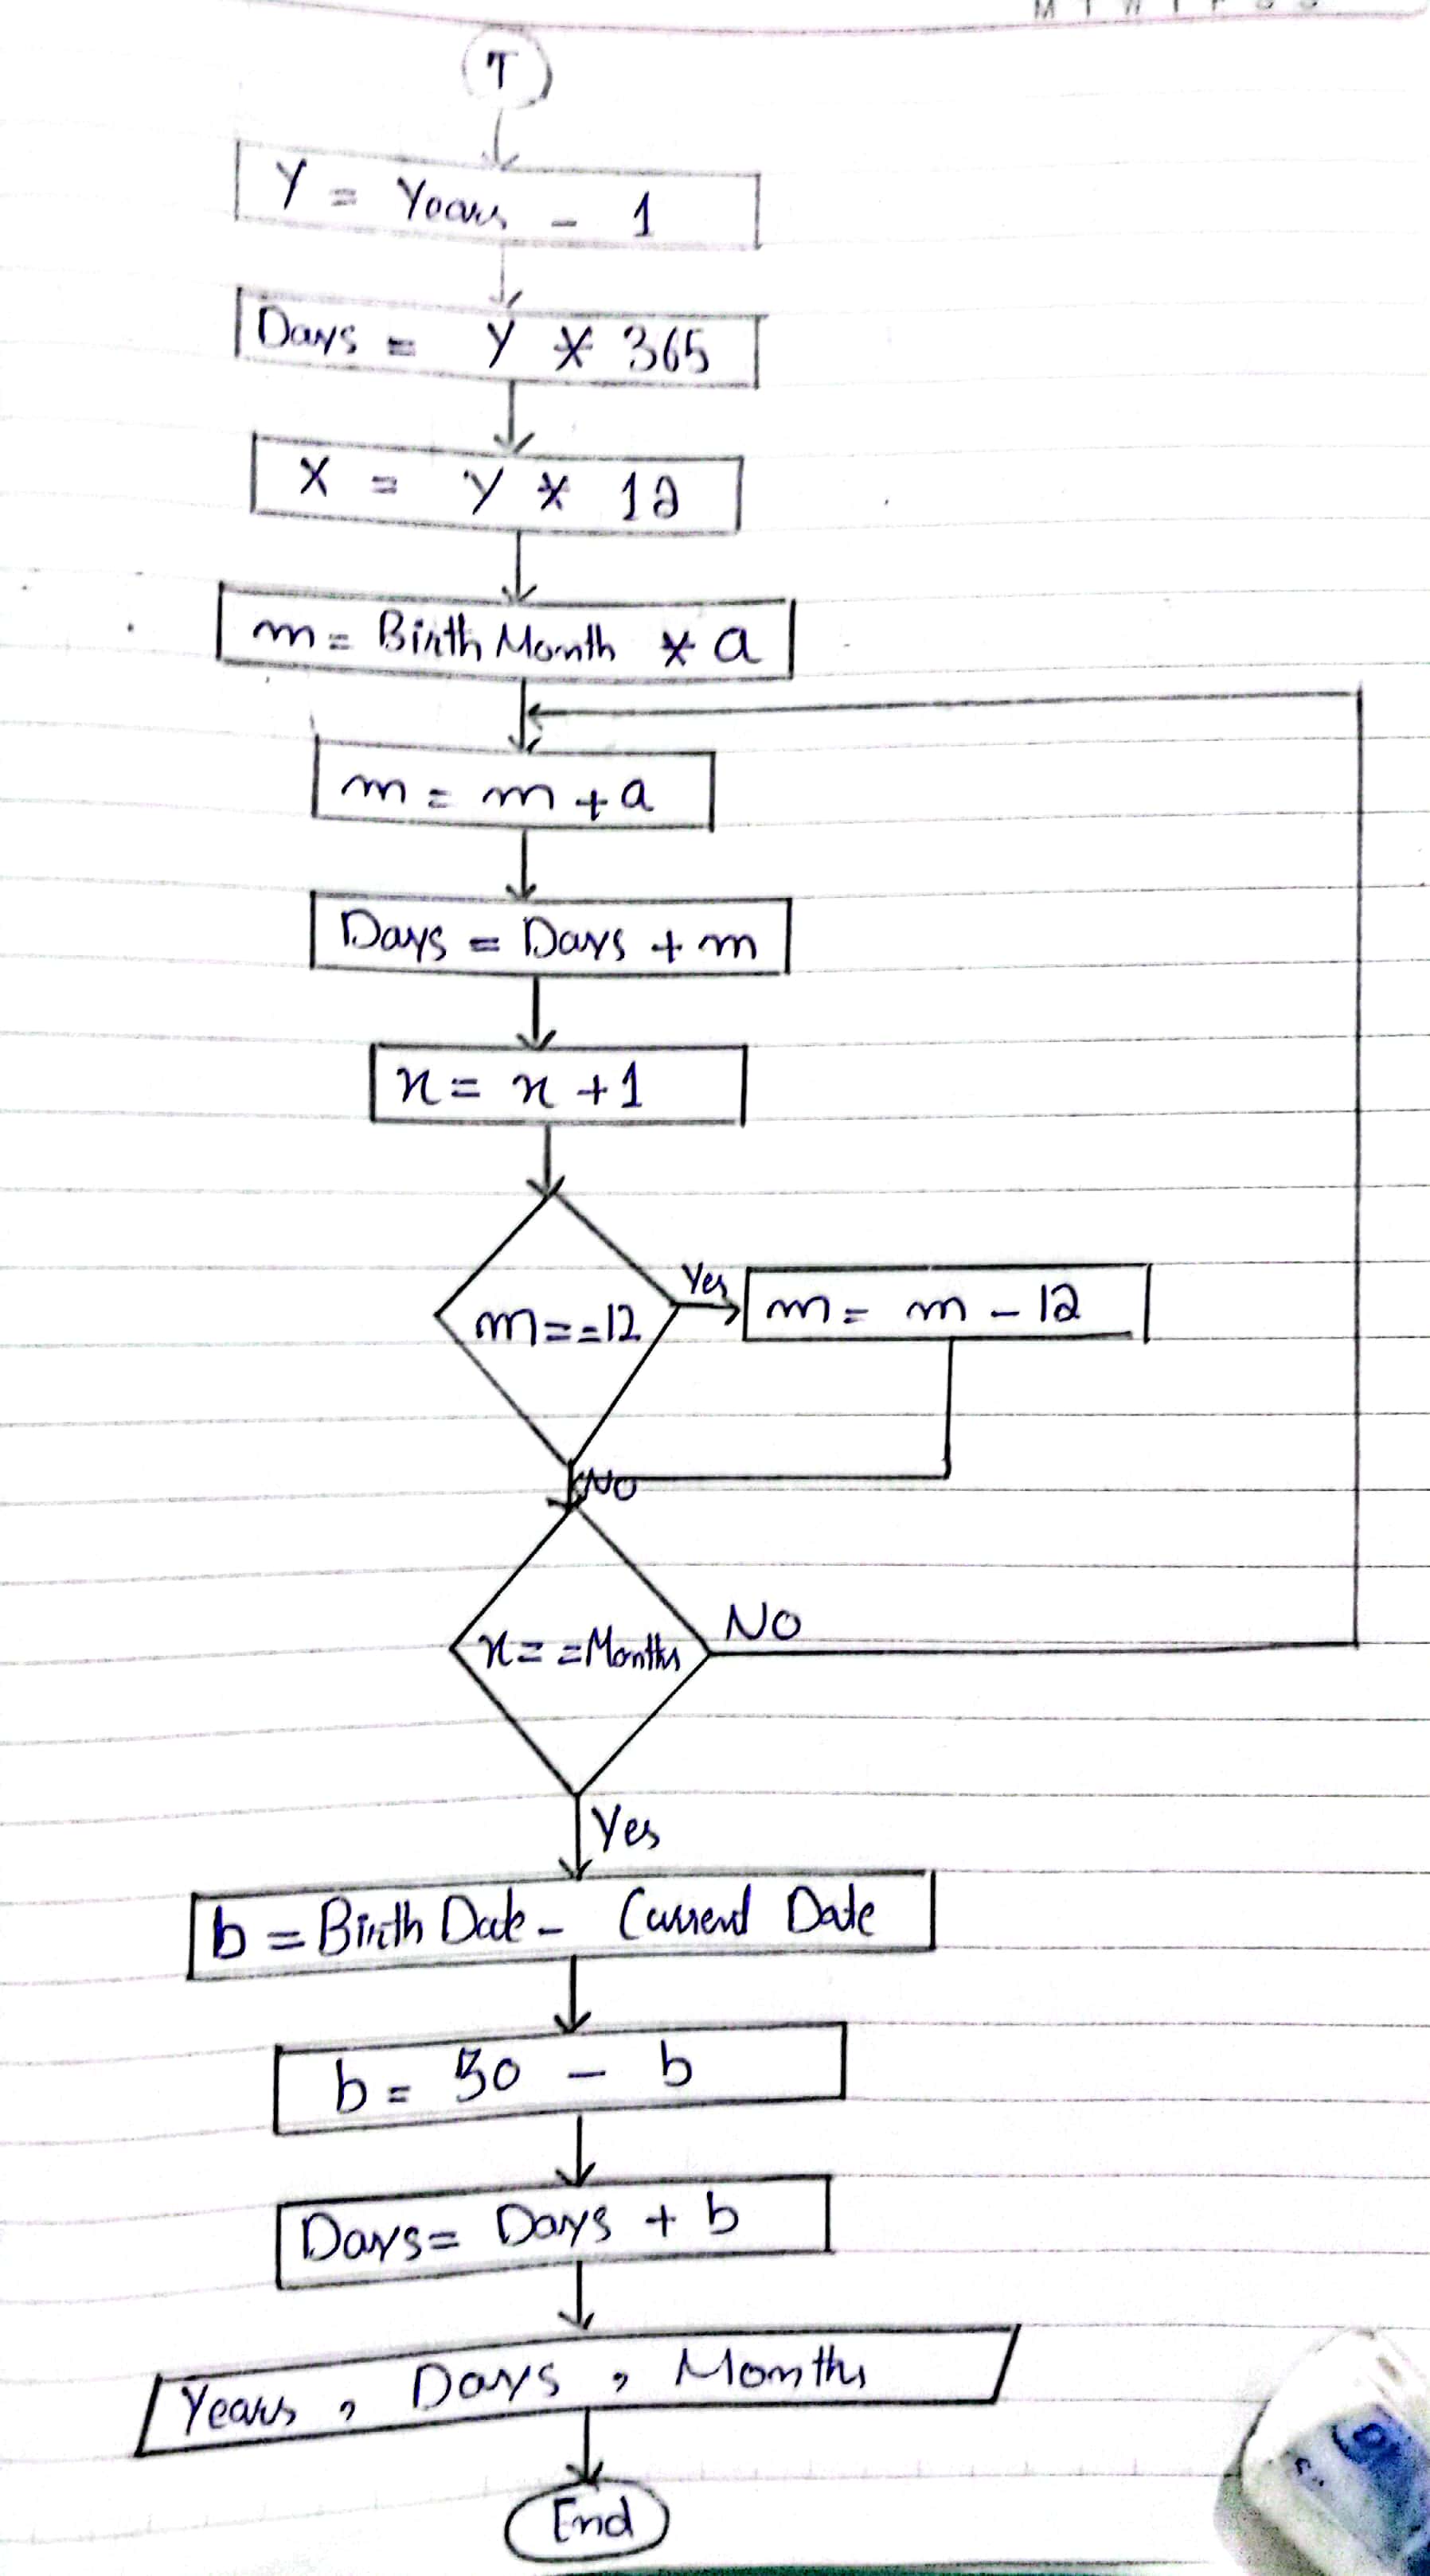 M T W T F S S
T
Y = Years - 1
Days = Y * 365
X = Y * 12
m = Birth Month * a
m = m + a
Days = Days + m
x = x + 1
m==12
Yes
m = m - 12
No
x==Months
NO
Yes
b = Birth Date - Current Date
b = 30 - b
Days = Days + b
Years, Days, Months
End